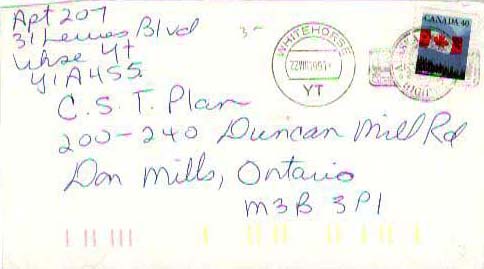 Apt 207
31 Lewes Blvd
Whse Yt
Y1A 4S5
CANADA 40
WHITEHORSE
YT
C.S.T. Plan
200-240 Duncan Mill Rd
Don Mills, Ontario
M3B 3P1